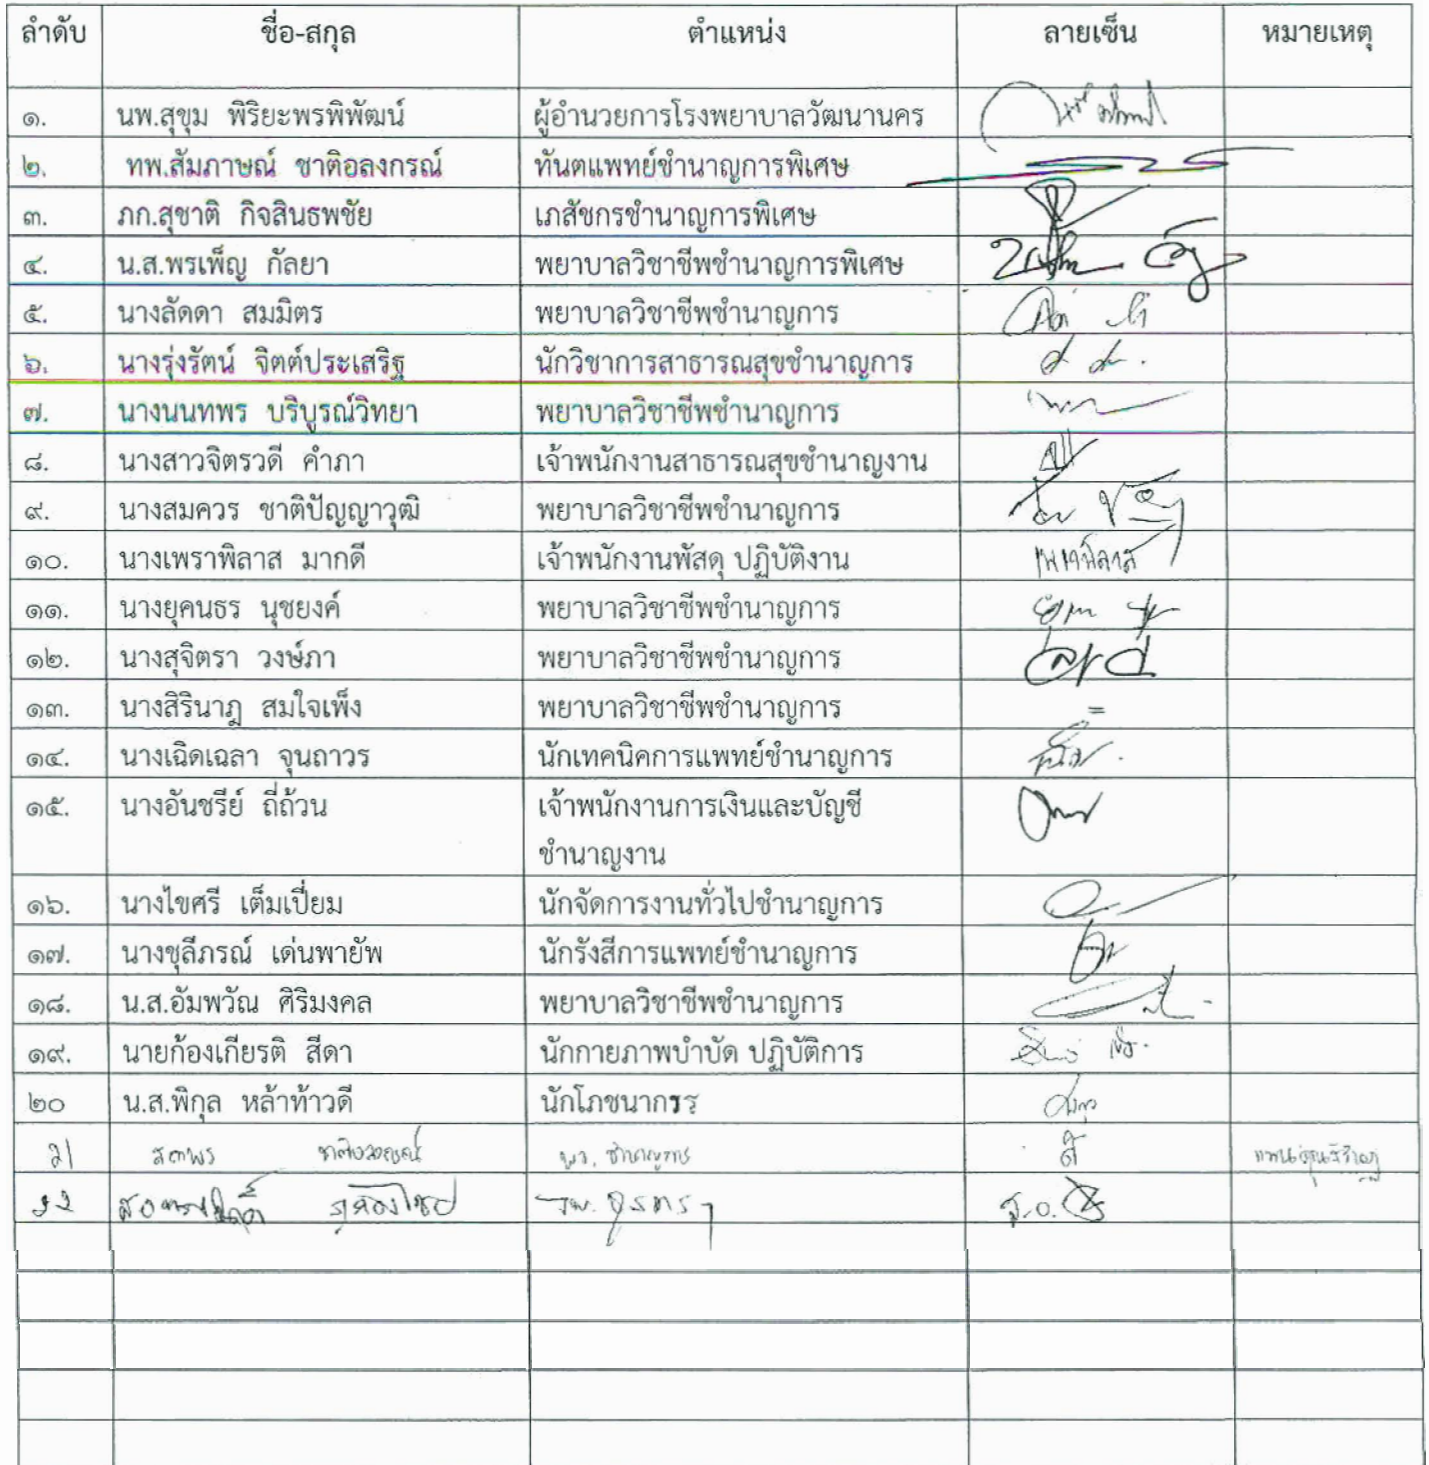 ลำดับ ชื่อ-สกุล ตำแหน่ง ลายเซ็น หมายเหตุ
๑. นพ.สุขุม พิริยะพรพิพัฒน์ ผู้อำนวยการโรงพยาบาลวัฒนานคร
๒. ทพ.สัมภาษณ์ ชาติอลงกรณ์ ทันตแพทย์ชำนาญการพิเศษ
๓. ภก.สุชาติ กิจสินธพชัย เภสัชกรชำนาญการพิเศษ
๔. น.ส.พรเพ็ญ กัลยา พยาบาลวิชาชีพชำนาญการพิเศษ
๕. นางลัดดา สมมิตร พยาบาลวิชาชีพชำนาญการ
๖. นางรุ่งรัตน์ จิตต์ประเสริฐ นักวิชาการสาธารณสุขชำนาญการ
๗. นางนนทพร บริบูรณ์วิทยา พยาบาลวิชาชีพชำนาญการ
๘. นางสาวจิตรวดี คำภา เจ้าพนักงานสาธารณสุขชำนาญงาน
๙. นางสมควร ชาติปัญญาวุฒิ พยาบาลวิชาชีพชำนาญการ
๑๐. นางเพราพิลาส มากดี เจ้าพนักงานพัสดุ ปฏิบัติงาน เพราพิลาส
๑๑. นางยุคนธร นุชยงค์ พยาบาลวิชาชีพชำนาญการ
๑๒. นางสุจิตรา วงษ์ภา พยาบาลวิชาชีพชำนาญการ
๑๓. นางสิรินาฎ สมใจเพ็ง พยาบาลวิชาชีพชำนาญการ =
๑๔. นางเฉิดเฉลา จุนถาวร นักเทคนิคการแพทย์ชำนาญการ
๑๕. นางอันชรีย์ ถี่ถ้วน เจ้าพนักงานการเงินและบัญชี
ชำนาญงาน
๑๖. นางไขศรี เต็มเปี่ยม นักจัดการงานทั่วไปชำนาญการ
๑๗. นางชุลีภรณ์ เด่นพายัพ นักรังสีการแพทย์ชำนาญการ
๑๘. น.ส.อัมพวัณ ศิริมงคล พยาบาลวิชาชีพชำนาญการ
๑๙. นายก้องเกียรติ สีดา นักกายภาพบำบัด ปฏิบัติการ
๒๐ น.ส.พิกุล หล้าท้าวดี นักโภชนากรร
21 สถาพร พว. ชำนาญการ
22